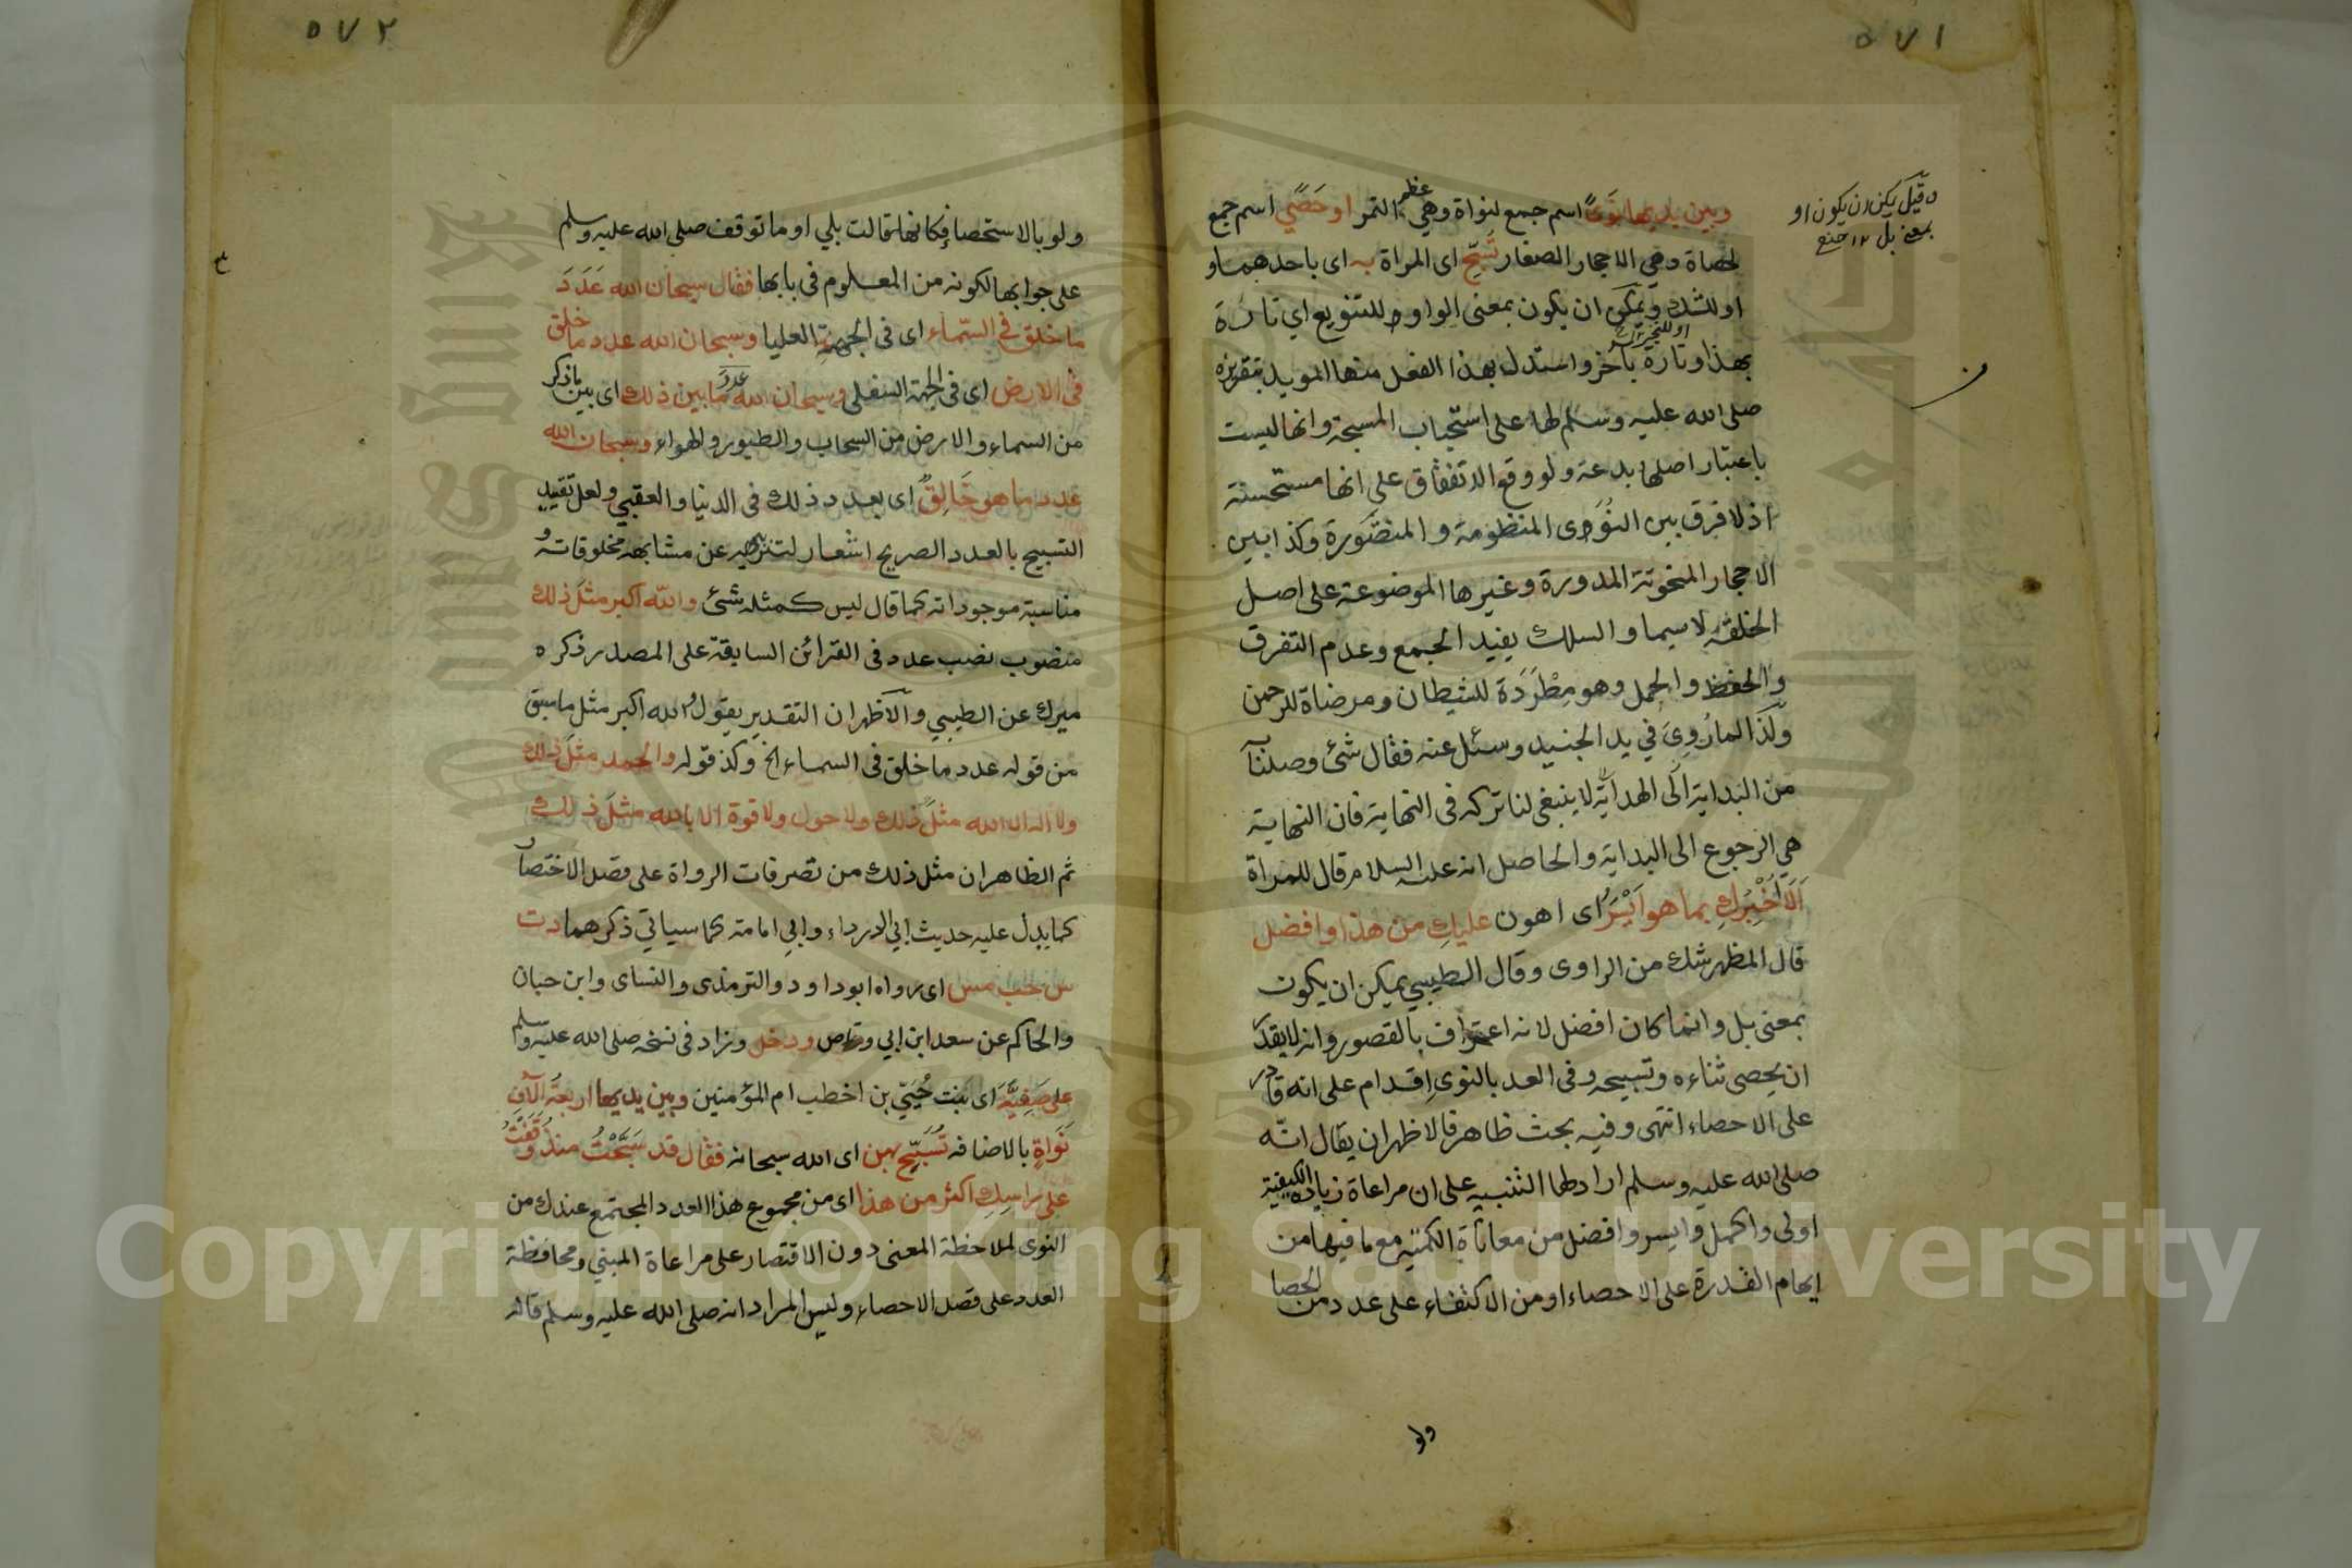 ٥٧١
وقيل يمكن ان يكون او
بمعنى بل ١٢ منح
وبين يديها نوًى اسم جمع لنواة وهي عظم التمر او حَصًى اسم جمع
لحصاة وهي الاحجار الصغار تُسَبِّح اى المراة به اى باحدهما و
او للشك ويمكن ان يكون بمعنى الواو او للتنويع اي تارة
او للتخيير
بهذا وتارة بآخر واستدل بهذا الفعل منها المويد بتقريره
صلى الله عليه وسلم لها على استحباب المسبحة وانها ليست
باعتبار اصلها بدعة ولو وقع الاتفقاق على انها مستحسنة
اذ لا فرق بين النوى المنظومة والمنثورة وكذا بين
الاحجار المنحوتة المدورة وغيرها الموضوعة على اصل
الخلقة لاسيما والسلك يفيد الجمع وعدم التفرق
والحفظ والحمل وهو مِطْرَدَة للشيطان ومرضاة للرحمن
ولذا لما رُوِىَ في يد الجنيد وسئل عنه فقال شئ وصلنا
من البداية الى الهداية لا ينبغى لنا تركه فى النهاية فان النهاية
هي الرجوع الى البداية والحاصل انه عليه السلام قال للمراة
اَلَا اُخْبِرُكِ بما هو اَيْسَرُ اى اهون عليكِ من هذا وافضل
قال المظهر شك من الراوى وقال الطيبي يمكن ان يكون
بمعنى بل وانما كان افضل لانه اعتراف بالقصور وانه لا يقدر
ان يحصى ثناءه وتسبيحه وفى العد بالنوى اِقدام على انه قادر
على الاحصاء انتهى وفيه بحث ظاهر فالاظهر ان يقال انه
صلى الله عليه وسلم اراد لها التنبيه على ان مراعاة زيادة الكيفية
اولى واكمل وايسر وافضل من معاناة الكمية مع ما فيها من
ايهام القدرة على الاحصاء او من الاكتفاء على عدد من الحصا
ولو
٥٧٢
ولو بالاستحصا فكانها قالت بلي او ما توقف صلى الله عليه وسلم
على جوابها لكونه من المعلوم فى بابها فقال سبحان الله عَدَدَ
ما خلق في السَّماء اى فى الجهة العليا وسبحان الله عدد ما خلق
فى الارض اى فى الجهة السفلى وسبحان الله عدد ما بين ذلك اى بين ما ذكر
من السماء والارض من السحاب والطيور والهواء وسبحان الله
عدد ما هو خَالِقٌ اى بعدد ذلك فى الدنيا والعقبي ولعل تقييد
التسبيح بالعدد الصريح اشعار لتنزيهه عن مشابهة مخلوقاته و
مناسبة موجوداته كما قال ليس كمثله شئ والله اكبر مثلَ ذلك
منصوب نصب عدد فى القرائن السابقة على المصدر ذكره
ميرك عن الطيبي والاظهر ان التقدير يقول الله اكبر مثل ما سبق
من قوله عدد ما خلق فى السماء الخ وكذا قوله والحمد مثلَ ذلك
ولا اله الا الله مثلَ ذلك ولا حول ولا قوة الا بالله مثلَ ذلك
ثم الظاهر ان مثل ذلك من تصرفات الرواة على قصد الاختصار
كما يدل عليه حديث ابي الدرداء وابي امامة كما سياتي ذكرهما د ت
س حب مس اى رواه ابو داود والترمذى والنساى وابن حبان
والحاكم عن سعد ابن ابي وقاص ودخل وزاد فى نسخة صلى الله عليه وسلم
على صَفِيَّةَ اى بنت حُيَيّ بن اخطب ام المؤمنين وبين يديها اربعةُ آلاف
نَوَاةٍ بالاضافة تُسَبِّح بهن اى الله سبحانه فقال قد سَبَّحْتُ منذُ وَقَفْتُ
على راسِكِ اكثر من هذا اى من مجموع هذا العدد المجتمع عندك من
النوى لملاحظة المعنى دون الاقتصار على مراعاة المبني ومحافظة
العدد على قصد الاحصاء وليس المراد انه صلى الله عليه وسلم قاله
Copyright © King Saud University